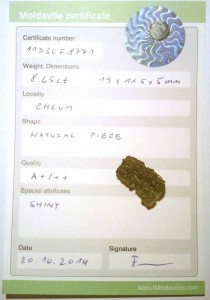 Moldavite certificate
Certificate number
11DSCF8771
Weight, Dimensions
8.65ct 19x11.5x5mm
Locality
CHLUM
Shape
NATURAL PIECE
Quality
A+/++
Special attributes
SHINY
Date
Signature
20.10.2014
AboutMoldavites.com